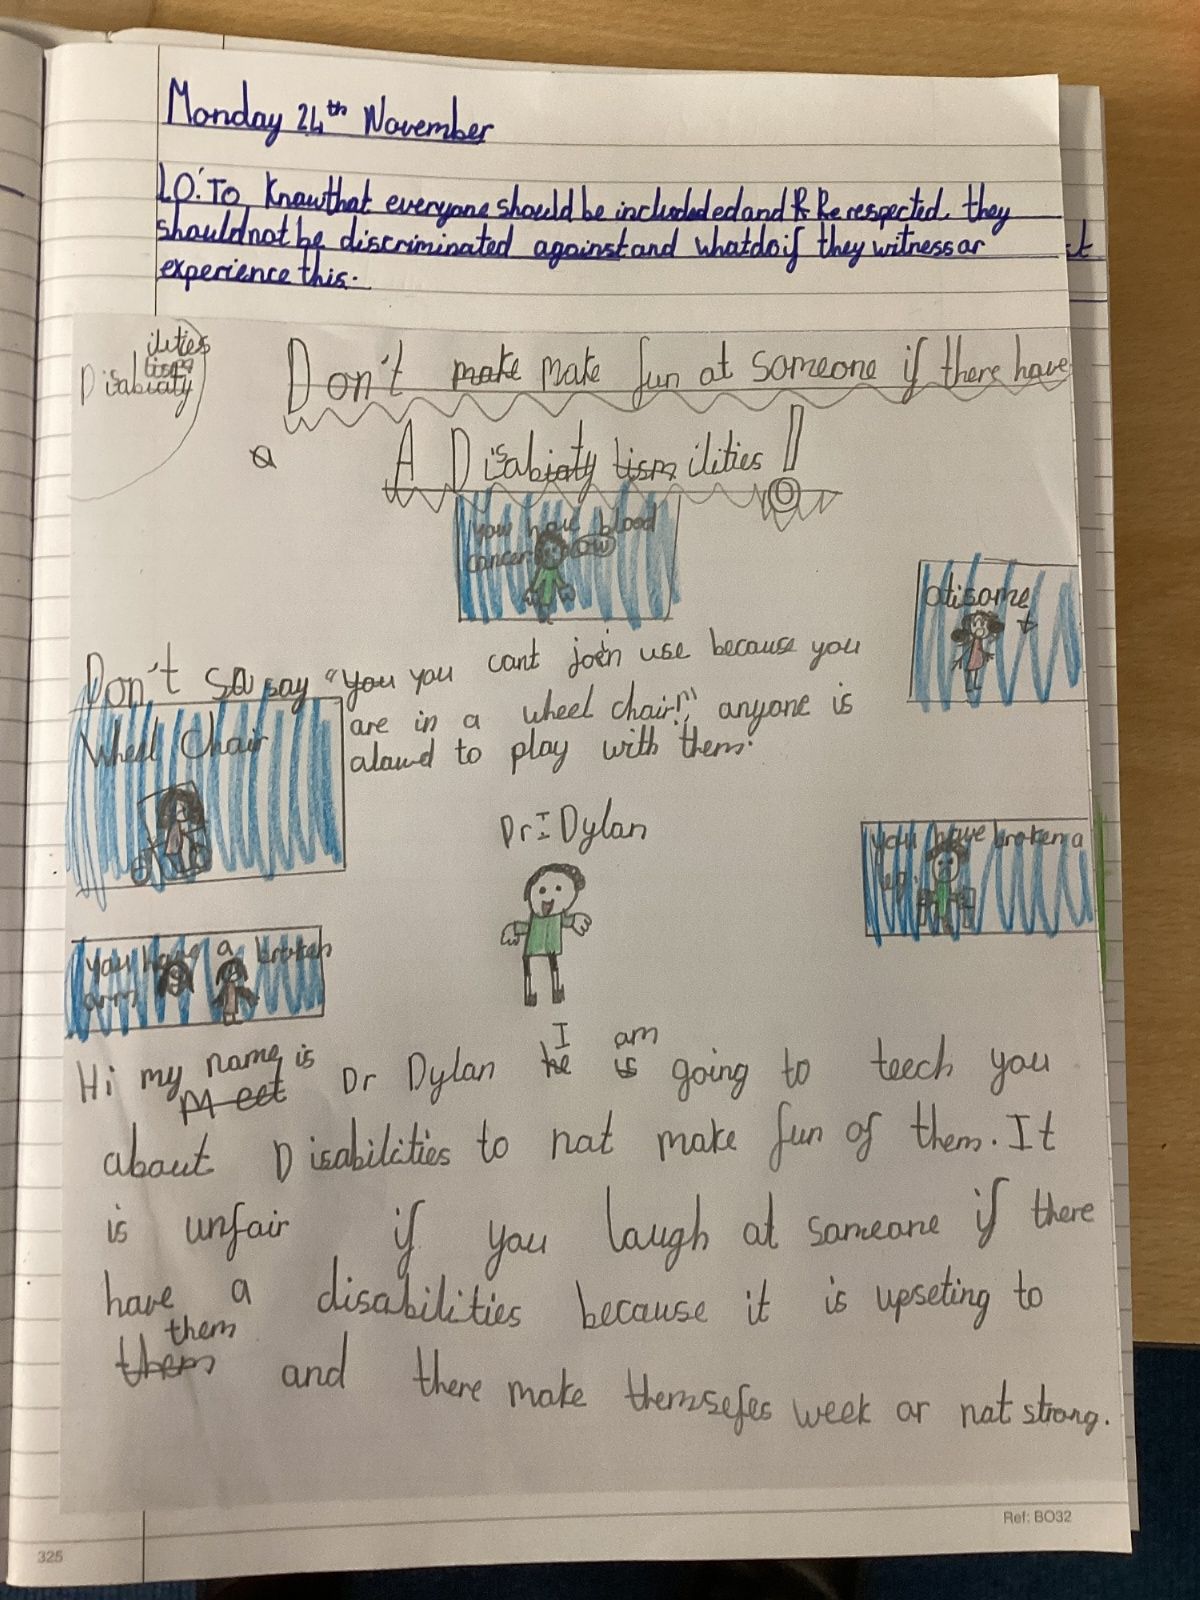 Monday 24th November
LO: To Know that everyone should be includeded and R Re respected. they
should not be discriminated against and what do if they witness or
experience this.
ilities
tism
Disabiaty
Don't make make fun at someone if there have
A Disabiaty tism ilities!
you have blood
cancer ow
atisome
Don't sa say "you you cant join use because you
are in a wheel chair!", anyone is
alawd to play with them.
Wheel Chair
Dr: Dylan
you have broken a
leg.
you have a broken
arm
I am
Hi my name is Dr Dylan he is going to teech you
Meet
about Disabilities to not make fun of them. It
is unfair if you laugh at someone if there
have a disabilities because it is upseting to
them
them and there make themsefes week or not strong.
Ref: BO32
325